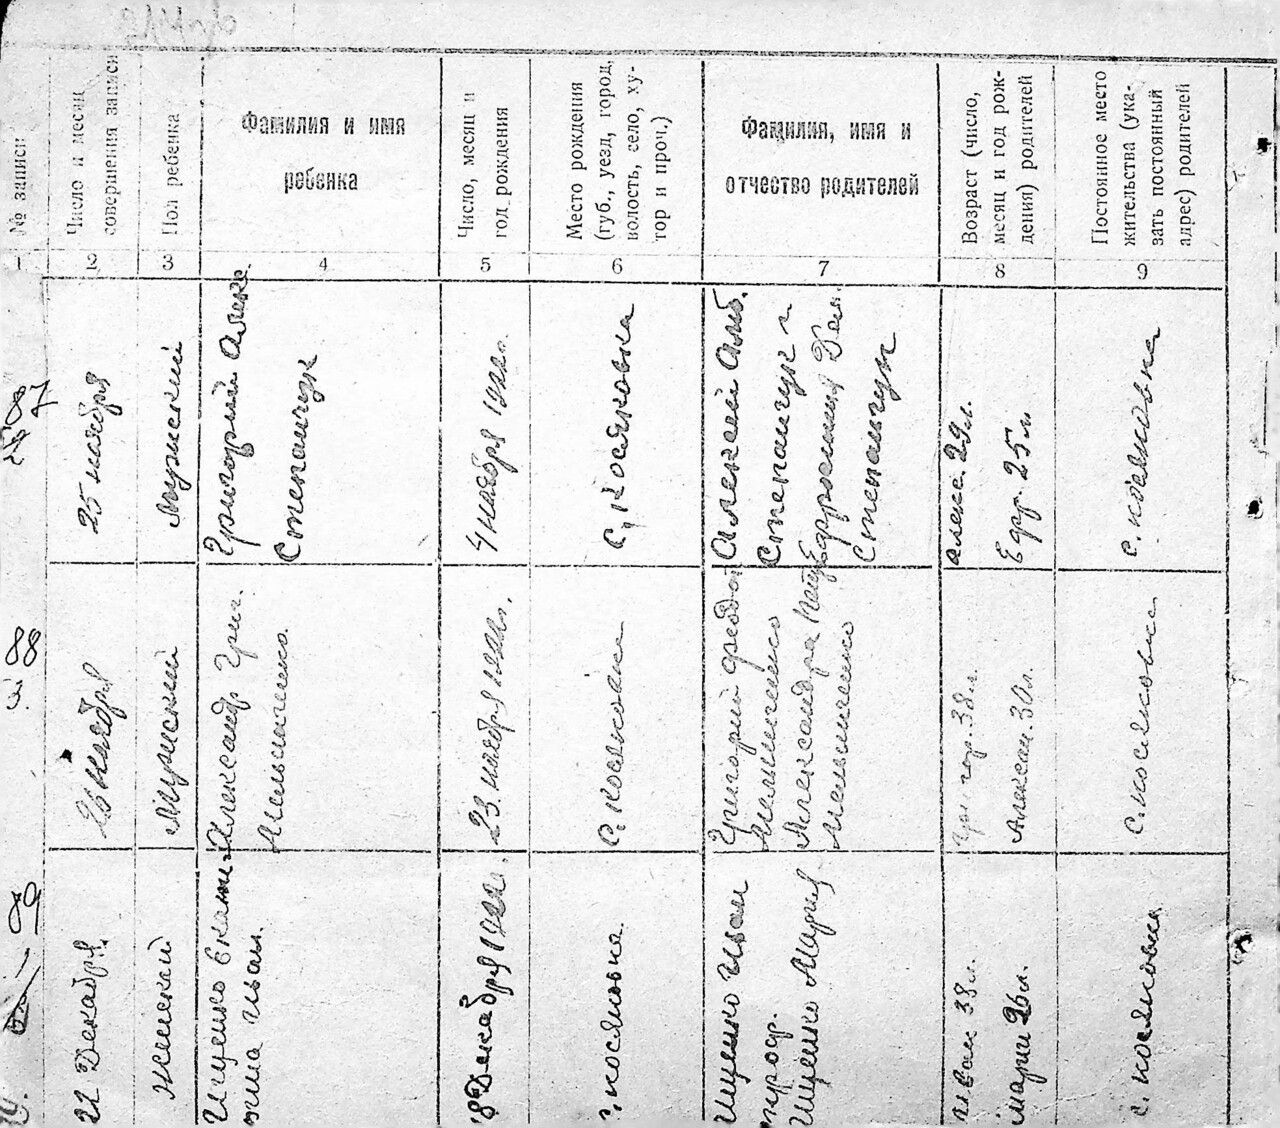 № записи
Число и месяц
совершения записи
Пол ребенка
Фамилия и имя
ребенка
Число, месяц и
год рождения
Место рождения
(губ., уезд, город,
волость, село, ху-
тор и проч.)
Фамилия, имя и
отчество родителей
Возраст (число,
месяц и год рож-
дения) родителей
Постоянное место
жительства (ука-
зать постоянный
адрес) родителей
1
2
3
4
5
6
7
8
9
87
25 ноября
Мужской
Григорий Алекс.
Степанчук
4 ноября 1922.
С. Косяковка
Алексей Амб.
Степанчук и
Ефросиния
Степанчук
Алекс. 29 л.
Ефр. 25 л
С. Косяковка
88
ноября
Мужской
Александр Григ.
Мельниченко
23 ноября 1922 г.
С. Косяковка
Григорий Федот
Мельниченко
Александра
Мельниченко
38 л.
Алексан. 30 л.
С. Косяковка
89
22 Декабря.
Женский
Ищенко Екате-
рина Иван.
8 Декабря 1922.
С. Косяковка
Ищенко Иван
Ищенко Мария
Иван 38 л.
Марии 26 л.
С. Косяковка